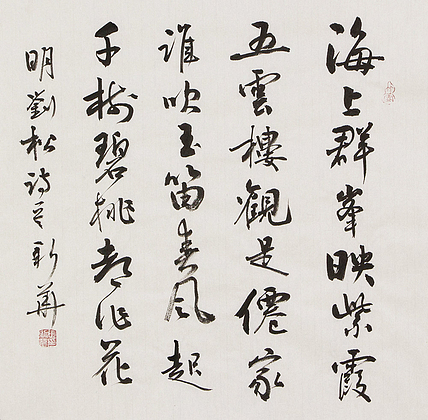 海上群峯映紫霞
五雲樓觀是僊家
誰吹玉笛春風起
千樹碧桃都作花
明劉松詩意新華